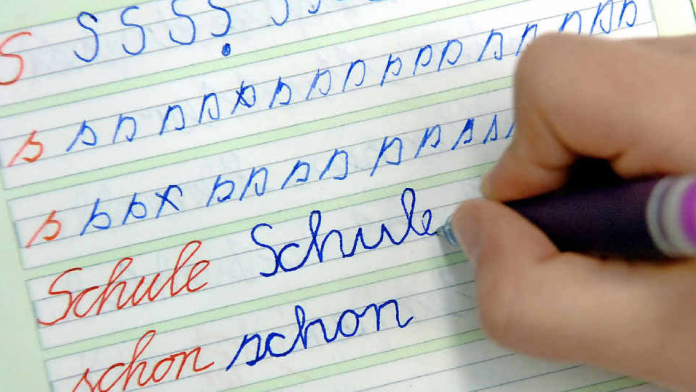 S S S S S
s s s s s s s s s s s s s s s s s
s s s s s s s s s s s s
Schule Schule
schon schon